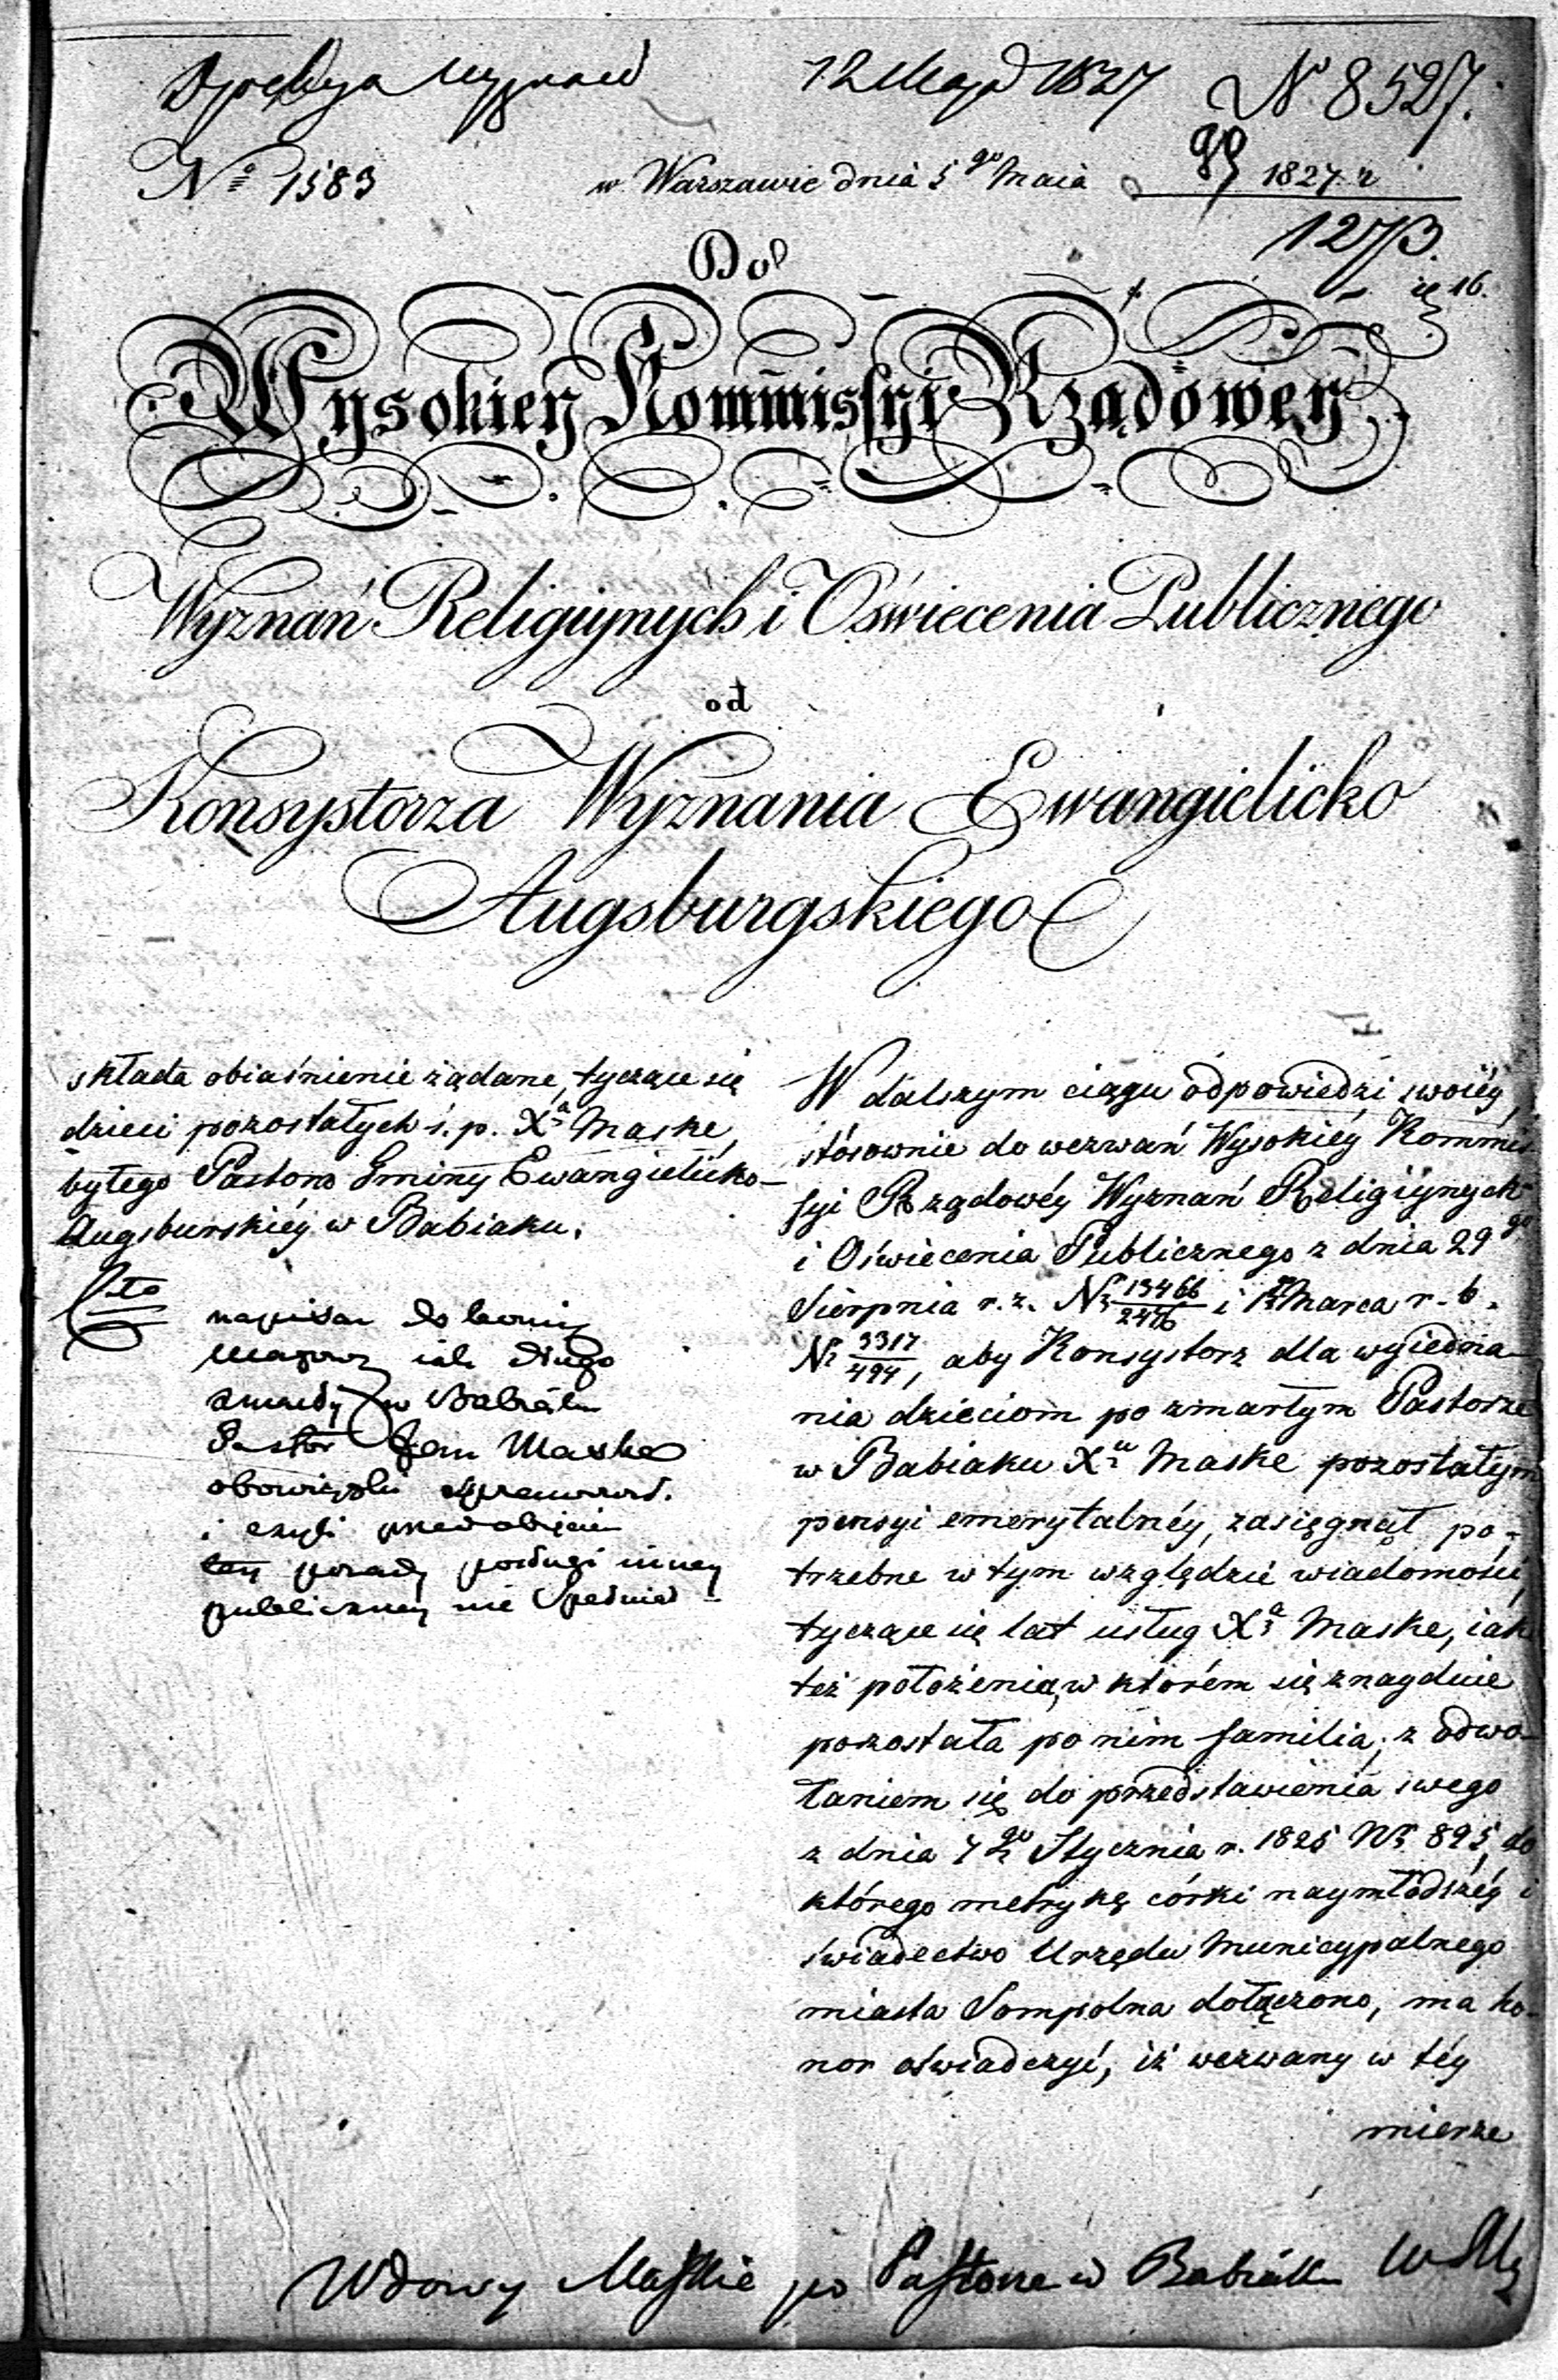 Dyrekcya Wyznań 12 Maja 1827 N° 8527.
N° 1583 w Warszawie dnia 5 go Maia 1827 r
1273.
Do
Wysokiey Kommissyi Rządowey
Wyznań Religiynych i Oświecenia Publicznego
od
Konsystorza Wyznania Ewangielicko
Augsburgskiego
składa obiaśnienie żądane, tyczące się
dzieci pozostałych ś. p. Xa Maske,
byłego Pastora Gminy Ewangielicko-
Augsburskiéy w Babiaku.
napisać do kommis
Mazow iak długo
zmarły w Babiaku
Pastor Jan Maske
obowiązki sprawował.
i czyli przed obięciem
tey posady posługi inney
publiczney nie pełnił
W dalszym ciągu odpowiedzi swoiéy,
stósownie do wezwań Wysokiéy Kommis-
syi Rządowéy Wyznań Religiynych
i Oświecenia Publicznego z dnia 29 go
Sierpnia r. z. Nr 13466/2476 i Marca r. b.
Nr 3317/494, aby Konsystorz dla wyiedna-
nia dzieciom po zmarłym Pastorze
w Babiaku Xu Maske pozostałym
pensyi emerytalnéy, zasięgnął po-
trzebne w tym względzie wiadomości,
tyczące się lat usług Xa Maske, iak
też położenia, w którém się znayduie
pozostała po nim familia; z odwo-
łaniem się do przedstawienia swego
z dnia 7 go Stycznia r. 1825 Nr 895, do
którego metrykę córki naymłodszéy i
świadectwo Urzędu Municypalnego
miasta Sompolna dołączono, ma ho-
nor oświadczyć, iż wezwany w téy
mierze
Wdowy Maskie po Pastorze w Babiaku